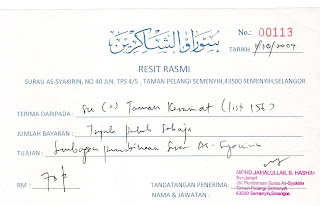 سوراو الشاكرين
No.: 00113
TARIKH: 1/10/2007
RESIT RASMI
SURAU AS-SYAKIRIN, NO 40 JLN. TPS 4/5, TAMAN PELANGI SEMENYIH, 43500 SEMENYIH, SELANGOR
TERIMA DARIPADA: Taman Keramat (list 156)
JUMLAH BAYARAN: Tujuh puluh sahaja
TUJUAN: Sumbangan pembinaan Surau As-Syakirin
RM: 70/-
TANDATANGAN PENERIMA:
NAMA & JAWATAN:
MOHD JAMALULLAIL B. HASHIM
Bendahari
J/K Pembinaan Surau As-Syakirin
Taman Pelangi Semenyih
43500 Semenyih, Selangor.